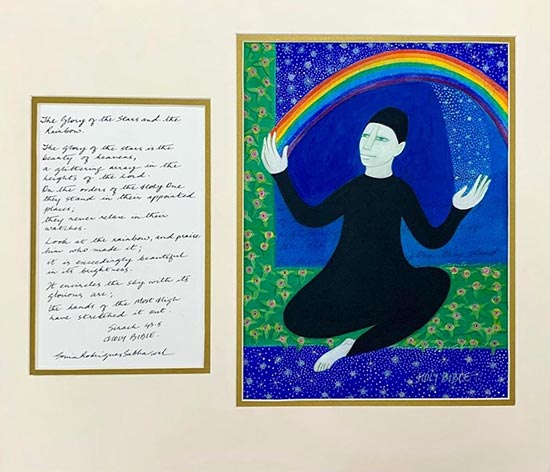 The Glory of the Stars and the
Rainbow.
The Glory of the stars is the
beauty of heavens,
a glittering array in the
heights of the Lord.
On the orders of the Holy One
they stand in their appointed
places;
they never relax in their
watches.
Look at the rainbow, and praise
him who made it;
it is exceedingly beautiful
in its brightness.
It encircles the sky with its
glorious arc;
the hands of the Most High
have stretched it out.
Sirach 43.5
HOLY BIBLE.
HOLY BIBLE